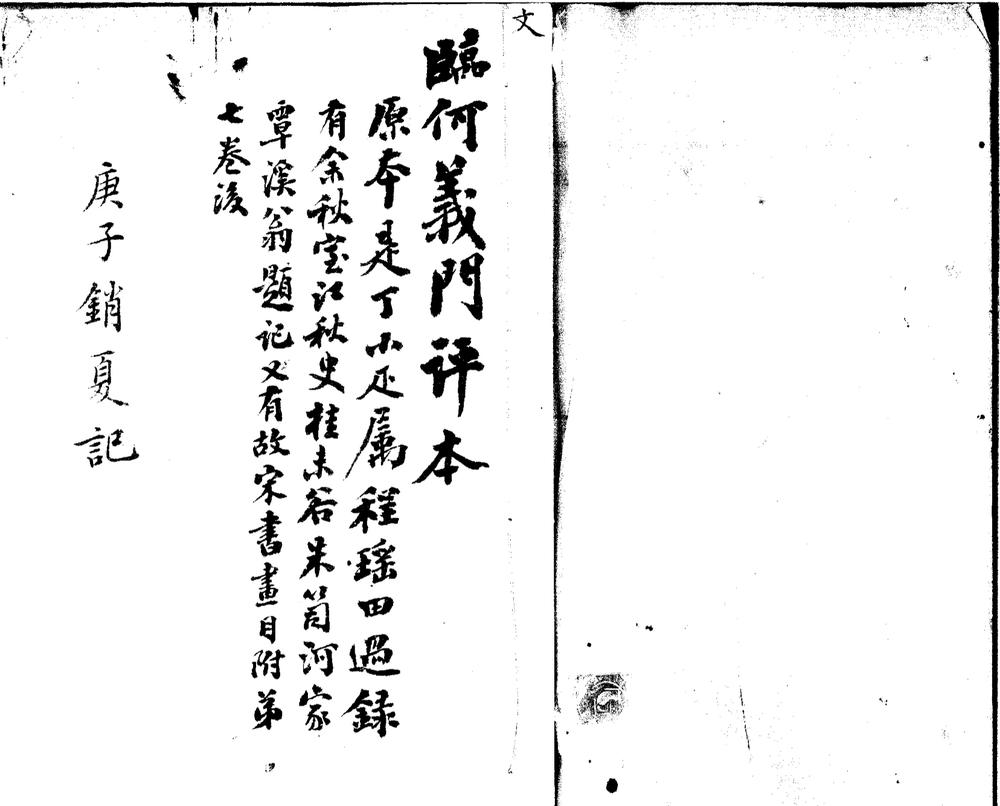 文
臨何義門评本
原本是丁小疋屬程瑶田過録
有余秋室江秋史桂未谷朱笥河家
覃溪翁題记又有故宋書畫目附弟
七卷後
庚子銷夏記